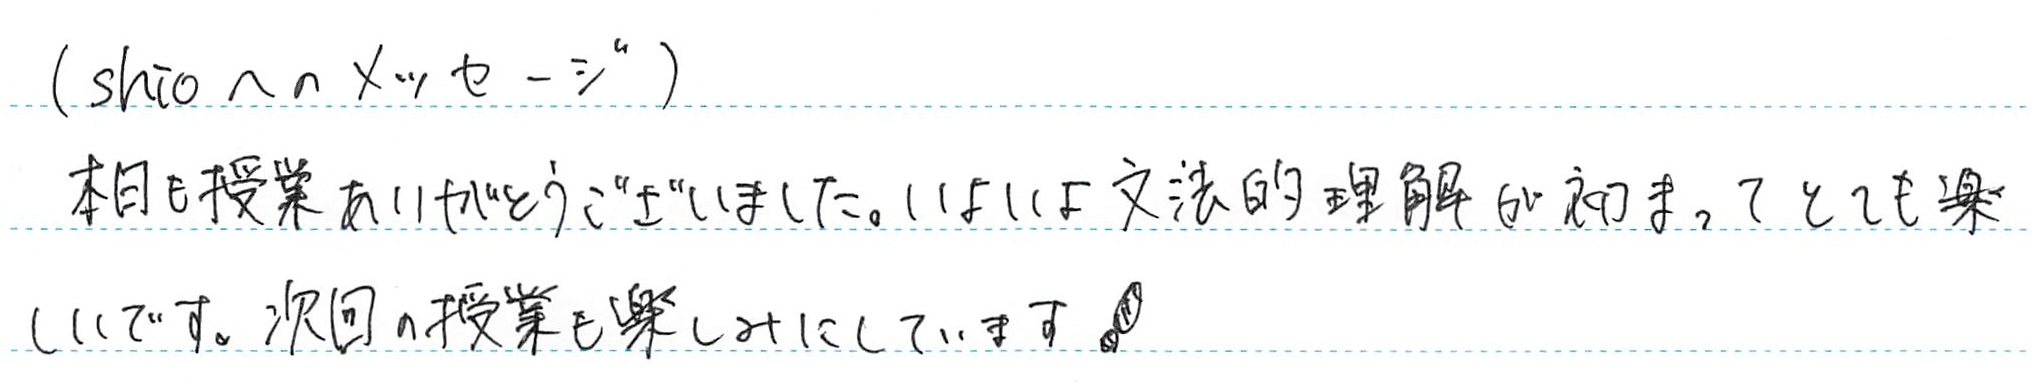 (shioへのメッセージ)
本日も授業ありがとうございました。いよいよ文法的理解が初まってとても楽
しいです。次回の授業も楽しみにしています!